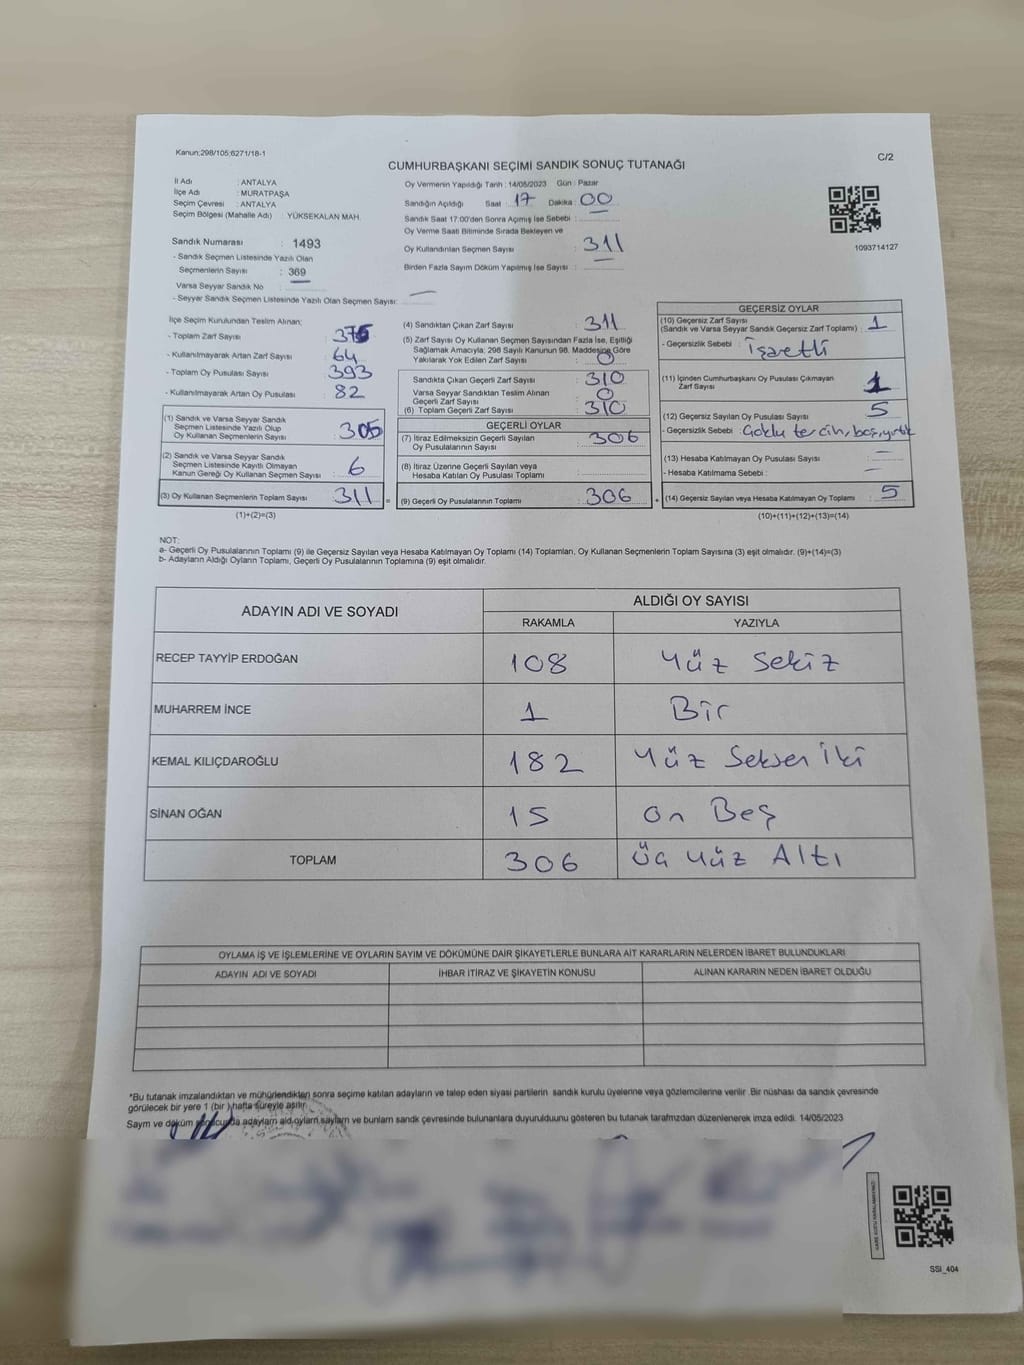 Kanun:298/105;6271/18-1
CUMHURBAŞKANI SEÇİMİ SANDIK SONUÇ TUTANAĞI
C/2
İl Adı : ANTALYA
İlçe Adı : MURATPAŞA
Seçim Çevresi : ANTALYA
Seçim Bölgesi (Mahalle Adı) : YÜKSEKALAN MAH.
Sandık Numarası : 1493
- Sandık Seçmen Listesinde Yazılı Olan
Seçmenlerin Sayısı : 369
Varsa Seyyar Sandık No :
- Seyyar Sandık Seçmen Listesinde Yazılı Olan Seçmen Sayısı: —
Oy Vermenin Yapıldığı Tarih : 14/05/2023 Gün : Pazar
Sandığın Açıldığı Saat : 17 Dakika : 00
Sandık Saat 17:00'den Sonra Açılmış İse Sebebi :
Oy Verme Saati Bitiminde Sırada Bekleyen ve
Oy Kullandırılan Seçmen Sayısı : 311
Birden Fazla Sayım Döküm Yapılmış İse Sayısı :
1093714127
İlçe Seçim Kurulundan Teslim Alınan;
- Toplam Zarf Sayısı : 375
- Kullanılmayarak Artan Zarf Sayısı : 64
- Toplam Oy Pusulası Sayısı : 393
- Kullanılmayarak Artan Oy Pusulası : 82
(1) Sandık ve Varsa Seyyar Sandık
Seçmen Listesinde Yazılı Olup
Oy Kullanan Seçmenlerin Sayısı : 305
(2) Sandık ve Varsa Seyyar Sandık
Seçmen Listesinde Kayıtlı Olmayan
Kanun Gereği Oy Kullanan Seçmen Sayısı : 6
(3) Oy Kullanan Seçmenlerin Toplam Sayısı : 311
(1)+(2)=(3)
(4) Sandıktan Çıkan Zarf Sayısı : 311
(5) Zarf Sayısı Oy Kullanan Seçmen Sayısından Fazla İse, Eşitliği
Sağlamak Amacıyla; 298 Sayılı Kanunun 98. Maddesine Göre
Yakılarak Yok Edilen Zarf Sayısı : 0
Sandıkta Çıkan Geçerli Zarf Sayısı : 310
Varsa Seyyar Sandıktan Teslim Alınan
Geçerli Zarf Sayısı : 0
(6) Toplam Geçerli Zarf Sayısı : 310
GEÇERLİ OYLAR
(7) İtiraz Edilmeksizin Geçerli Sayılan
Oy Pusulalarının Sayısı : 306
(8) İtiraz Üzerine Geçerli Sayılan veya
Hesaba Katılan Oy Pusulası Toplamı :
= (9) Geçerli Oy Pusulalarının Toplamı : 306 +
GEÇERSİZ OYLAR
(10) Geçersiz Zarf Sayısı
(Sandık ve Varsa Seyyar Sandık Geçersiz Zarf Toplamı) : 1
- Geçersizlik Sebebi : işaretli
(11) İçinden Cumhurbaşkanı Oy Pusulası Çıkmayan
Zarf Sayısı : 1
(12) Geçersiz Sayılan Oy Pusulası Sayısı : 5
- Geçersizlik Sebebi : Çoklu tercih, boş, yırtık
(13) Hesaba Katılmayan Oy Pusulası Sayısı : —
- Hesaba Katılmama Sebebi : —
(14) Geçersiz Sayılan veya Hesaba Katılmayan Oy Toplamı : 5
(10)+(11)+(12)+(13)=(14)
NOT:
a- Geçerli Oy Pusulalarının Toplamı (9) ile Geçersiz Sayılan veya Hesaba Katılmayan Oy Toplamı (14) Toplamları, Oy Kullanan Seçmenlerin Toplam Sayısına (3) eşit olmalıdır. (9)+(14)=(3)
b- Adayların Aldığı Oyların Toplamı, Geçerli Oy Pusulalarının Toplamına (9) eşit olmalıdır.
ADAYIN ADI VE SOYADI
ALDIĞI OY SAYISI
RAKAMLA YAZIYLA
RECEP TAYYİP ERDOĞAN 108 Yüz Sekiz
MUHARREM İNCE 1 Bir
KEMAL KILIÇDAROĞLU 182 Yüz Seksen İki
SİNAN OĞAN 15 On Beş
TOPLAM 306 Üç Yüz Altı
OYLAMA İŞ VE İŞLEMLERİNE VE OYLARIN SAYIM VE DÖKÜMÜNE DAİR ŞİKAYETLERLE BUNLARA AİT KARARLARIN NELERDEN İBARET BULUNDUKLARI
ADAYIN ADI VE SOYADI İHBAR İTİRAZ VE ŞİKAYETİN KONUSU ALINAN KARARIN NEDEN İBARET OLDUĞU
*Bu tutanak imzalandıktan ve mühürlendikten sonra seçime katılan adayların ve talep eden siyasi partilerin sandık kurulu üyelerine veya gözlemcilerine verilir .Bir nüshası da sandık çevresinde
görülecek bir yere 1 (bir ) hafta süreyle asılır.
Sayım ve döküm sonucunda adayların aldı oyların sayıları ve bunların sandık çevresinde bulunanlara duyurulduunu gösteren bu tutanak tarafımızdan düzenlenerek imza edildi. 14/05/2023
SSI_404